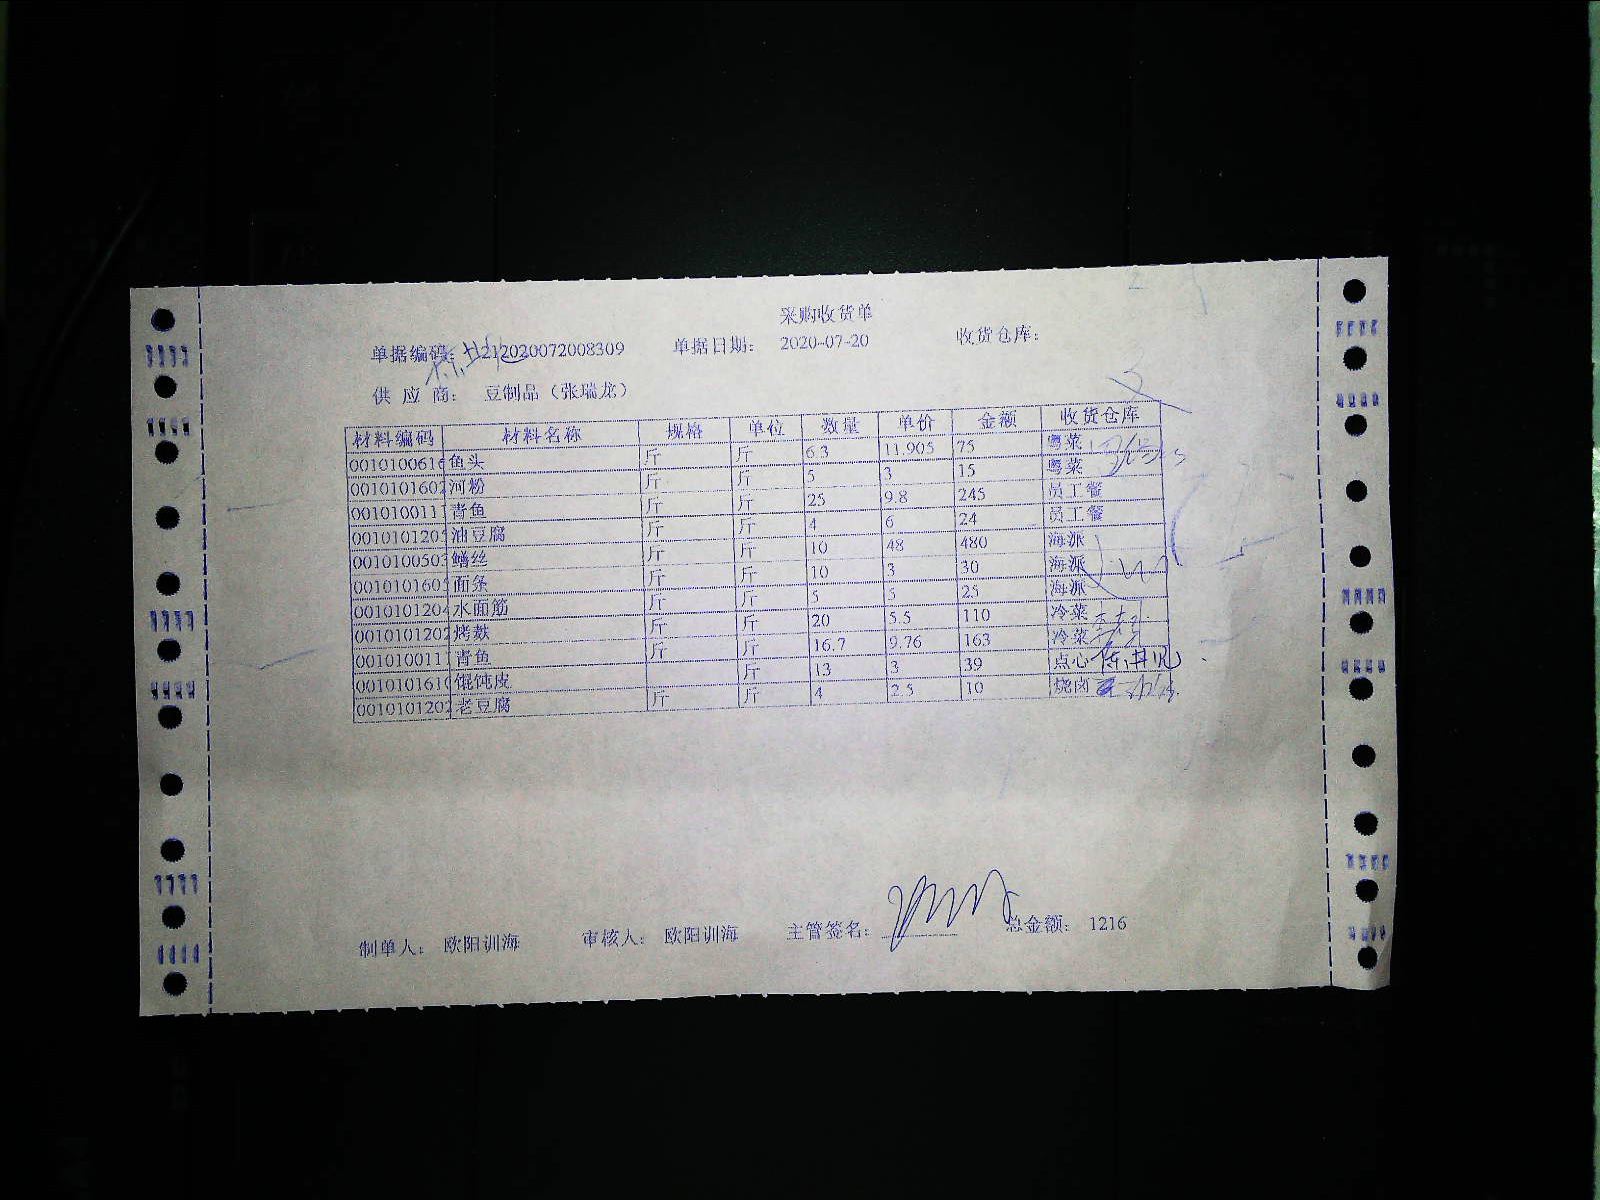 采购收货单
单据编码： 212020072008309 单据日期： 2020-07-20 收货仓库：
供 应 商： 豆制品（张瑞龙）
材料编码 材料名称 规格 单位 数量 单价 金额 收货仓库
0010100616 鱼头 斤 斤 6.3 11.905 75 粤菜
0010101602 河粉 斤 斤 5 3 15 粤菜
001010011 青鱼 斤 斤 25 9.8 245 员工餐
001010120 油豆腐 斤 斤 4 6 24 员工餐
0010100503 鳝丝 斤 斤 10 48 480 海派
001010160 面条 斤 斤 10 3 30 海派
0010101204 水面筋 斤 斤 5 5 25 海派
0010101202 烤麸 斤 斤 20 5.5 110 冷菜
001010011 青鱼 斤 斤 16.7 9.76 163 冷菜
0010101610 馄饨皮 斤 13 3 39 点心
0010101202 老豆腐 斤 斤 4 2.5 10 烧卤
制单人： 欧阳训海 审核人： 欧阳训海 主管签名： 总金额： 1216